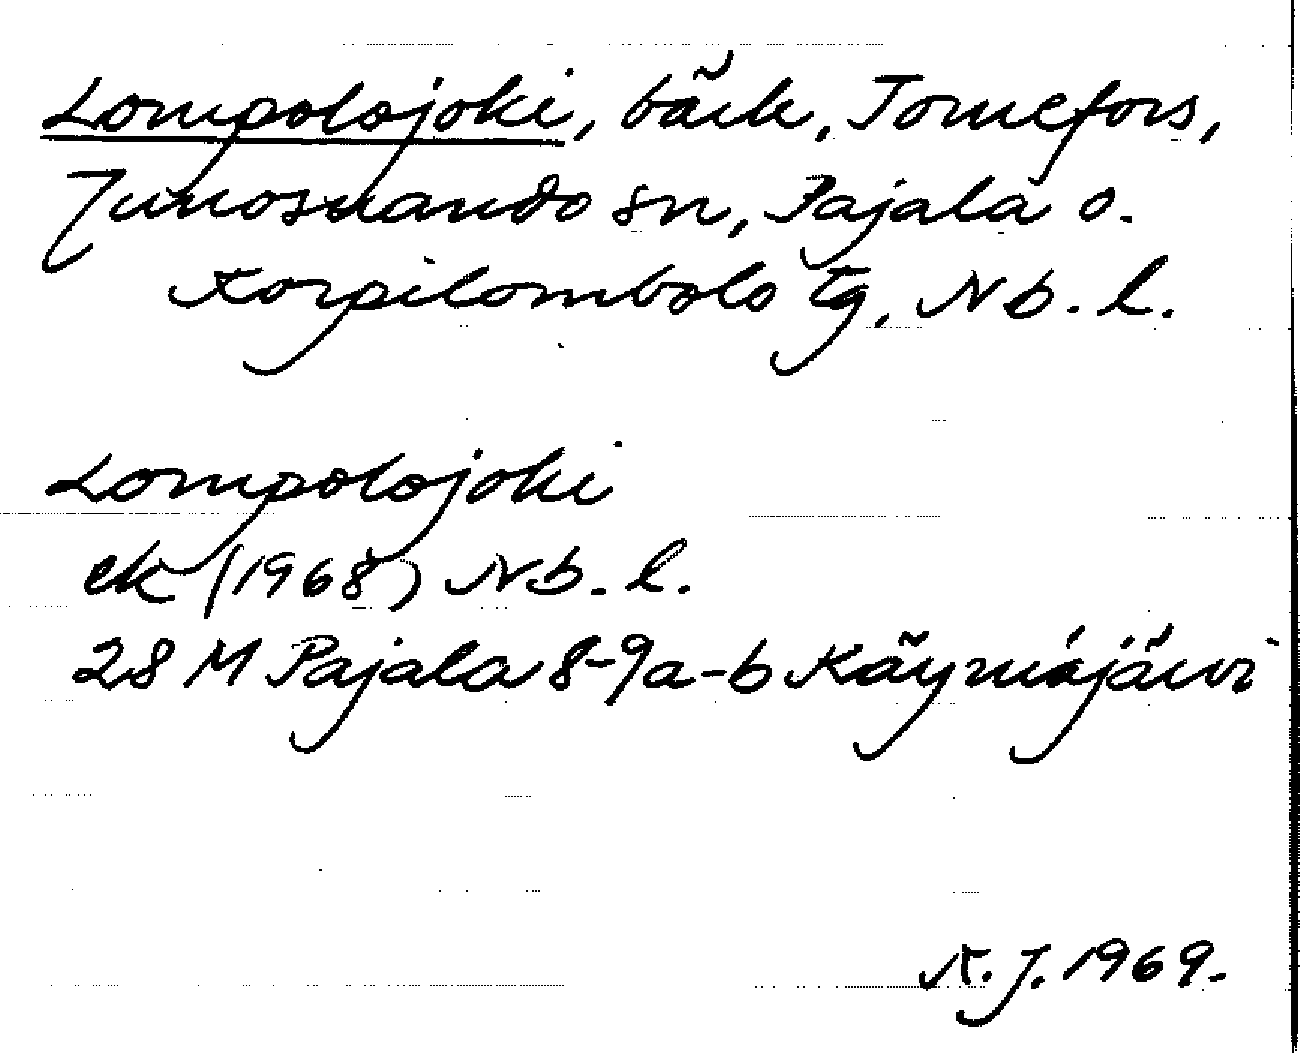 Lompolojoki, bäck, Tornefors,
Junosuando sn, Pajala o.
Korpilombolo tg, Nb. l.
Lompolojoki
ek (1968) Nb. l.
28 M Pajala 8-9a-b Käymäjärvi
N. J. 1969.